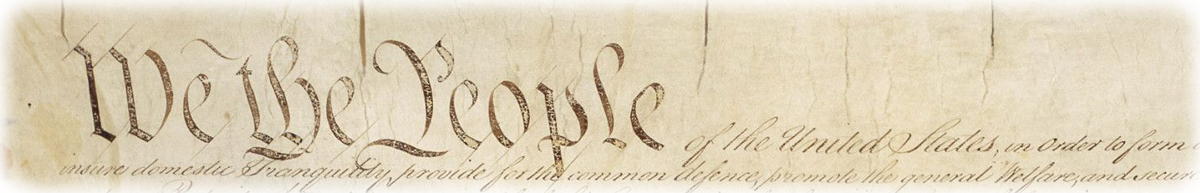 We the People of the United States, in Order to form
insure domestic Tranquility, provide for the common defence, promote the general Welfare, and secur